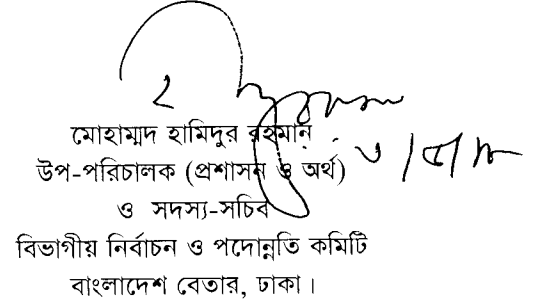 মোহাম্মদ হামিদুর রহমান
উপ-পরিচালক (প্রশাসন ও অর্থ)
ও সদস্য-সচিব
বিভাগীয় নির্বাচন ও পদোন্নতি কমিটি
বাংলাদেশ বেতার, ঢাকা।